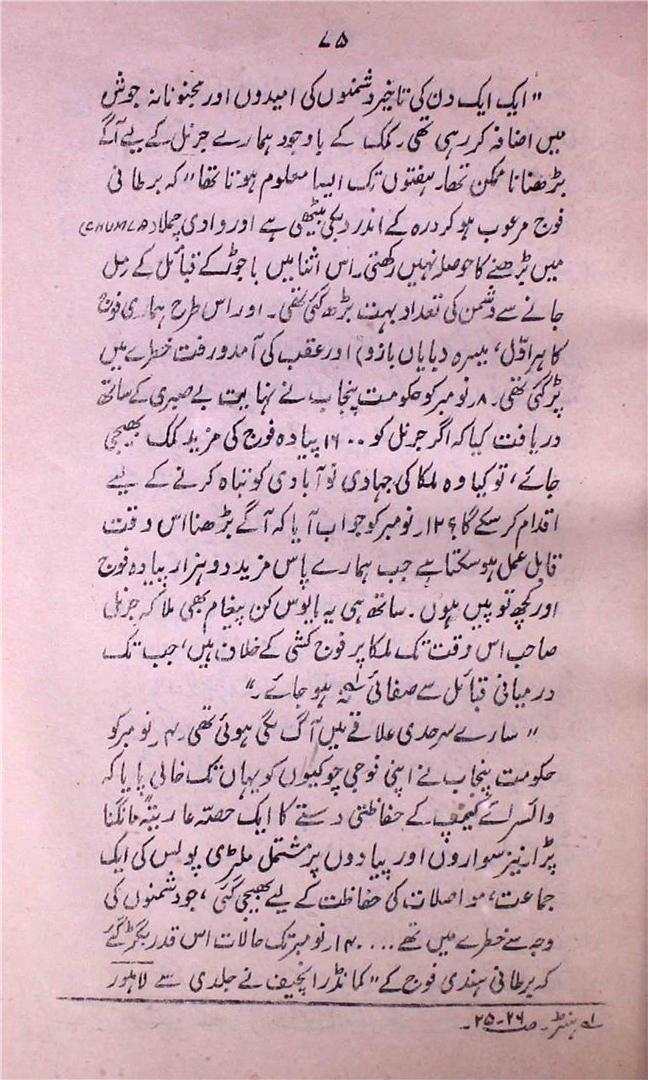 ۷۵
"ایک ایک دن کی تاخیر دشمنوں کی امیدوں اور مجنونانہ جوش
میں اضافہ کر رہی تھی۔ کمک کے باوجود ہمارے جرنل کے لیے آگے
بڑھنا نا ممکن تھا۔ ہفتوں تک ایسا معلوم ہوتا تھا" کہ برطانی
فوج مرعوب ہو کر درہ کے اندر دبکی بیٹھی ہے اور وادی چملا (CHUMLA)
میں بڑھنے کا حوصلہ نہیں رکھتی۔ اس اثنا میں باجوڑ کے قبائل کے مل
جانے سے دشمن کی تعداد بہت بڑھ گئی تھی۔ اور اس طرح ہماری فوج
کا ہراوّل، میسرہ (بایاں بازو) اور عقب کی آمد و رفت خطرے میں
پڑ گئی تھی۔ ۸ نومبر کو حکومت پنجاب نے نہایت بے صبری کے ساتھ
دریافت کیا کہ اگر جرنل کو ۱۶۰۰ پیادہ فوج کی مزید کمک بھیجی
جائے، تو کیا وہ ملکا کی جہادی نو آبادی کو تباہ کرنے کے لیے
اقدام کر سکے گا؟ ۱۲۔ نومبر کو جواب آیا کہ آگے بڑھنا اس وقت
قابل عمل ہو سکتا ہے جب ہمارے پاس مزید دو ہزار پیادہ فوج
اور کچھ توپیں ہوں۔ ساتھ ہی یہ مایوس کن پیغام بھی ملا کہ جرنل
صاحب اس وقت تک ملکا پر فوج کشی کے خلاف ہیں، جب تک
درمیانی قبائل سے صفائی نہ ہو جائے۔" ؎۱
"سارے سرحدی علاقے میں آگ لگی ہوئی تھی۔ ۴۔ نومبر کو
حکومت پنجاب نے اپنی فوجی چوکیوں کو یہاں تک خالی پایا کہ
وائسرائے کیمپ کے حفاظتی دستے کا ایک حصّہ عاریتہً مانگنا
پڑا۔ نیز سواروں اور پیادوں پر مشتمل ملٹری پولس کی ایک
جماعت، مواصلات کی حفاظت کے لیے بھیجی گئی، جو دشمنوں کی
وجہ سے خطرے میں تھے ..... ۱۴۔ نومبر تک حالات اس قدر بگڑ گئے
کہ برطانی ہندی فوج کے "کمانڈر انچیف نے جلدی سے لاہور
؎۱ ہنٹر۔ ص ۲۶-۲۵۔